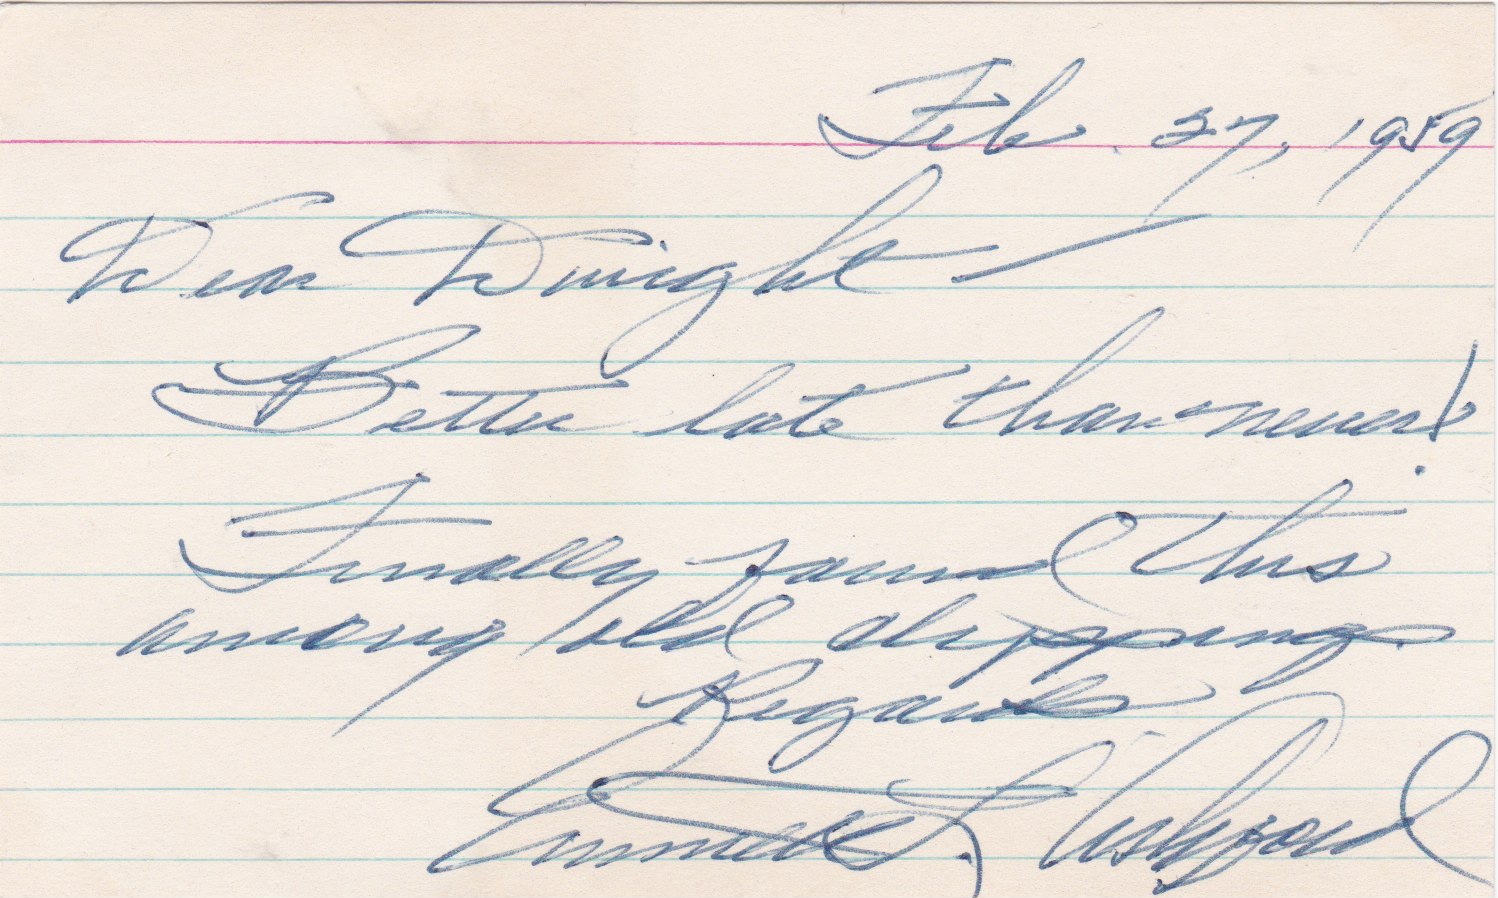 Feb. 27, 1959
Dear Dwight —
Better late than never!
Finally found this
among old clippings.
Regards
Emmett L. Ashford